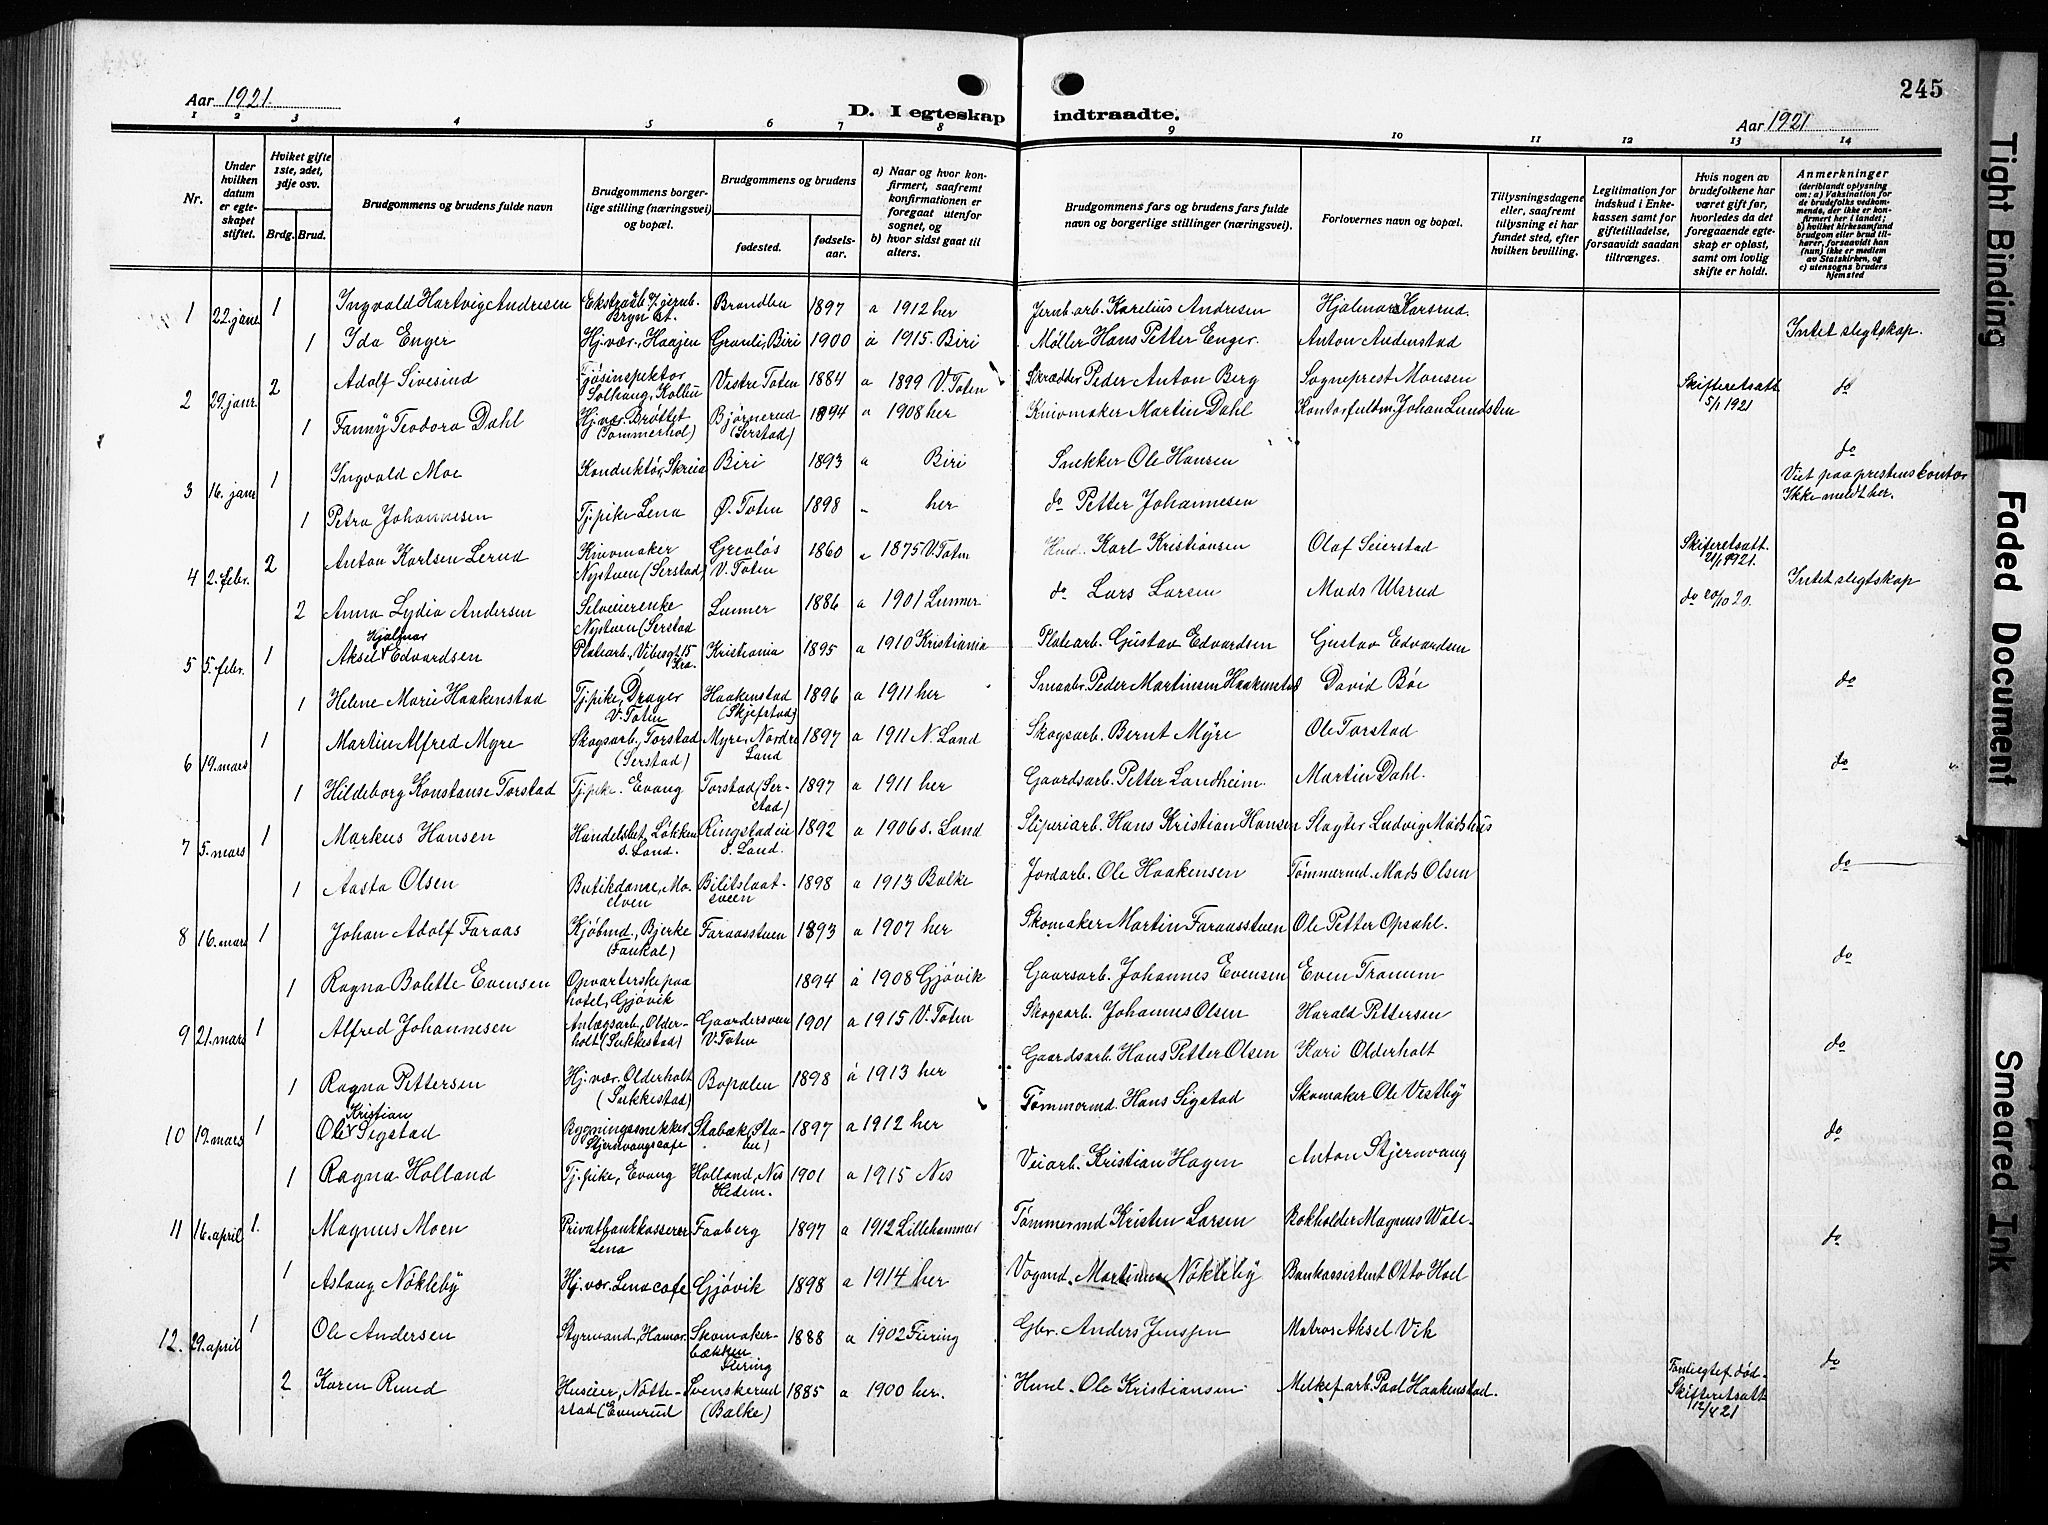 245
Aar 1921.
D. I egteskap indtraadte.
Aar 1921
1 2 3 4 5 6 7 8 9 10 11 12 13 14
Nr.
Under hvilken datum er egteskapet stiftet.
Hvilket gifte 1ste, 2det, 3dje osv.
Brdg. Brud.
Brudgommens og brudens fulde navn
Brudgommens borgerlige stilling (næringsvei) og bopæl.
Brudgommens og brudens
fødested.
fødselsaar.
a) Naar og hvor konfirmert, saafremt konfirmationen er foregaat utenfor sognet, og
b) hvor sidst gaat til alters.
Brudgommens fars og brudens fars fulde navn og borgerlige stillinger (næringsvei).
Forlovernes navn og bopæl.
Tillysningsdagene eller, saafremt tillysning ei har fundet sted, efter hvilken bevilling.
Legitimation for indskud i Enkekassen samt for giftetilladelse, forsaavidt saadan tiltrænges.
Hvis nogen av brudefolkene har været gift før, hvorledes da det foregaaende egteskap er opløst, samt om lovlig skifte er holdt.
Anmerkninger
(deriblandt oplysning om: a) Vaksination for de brudefolks vedkommende, der ikke er konfirmert her i landet; b) hvilket kirkesamfund brudgom eller brud tilhører, forsaavidt han (hun) ikke er medlem av Statskirken, og c) utensogns bruders hjemsted
1 22. jan. 1 Ingvald Hartvig Andresen Ekstraarb. v. jernb. Bryn st. Brandbu 1897 a 1912 her Jernb.arb. Karelius Andresen Hjalmar Karsrud.
1 Ida Enger Hj.vær., Haajen Granli, Biri 1900 a 1915. Biri Møller Hans Petter Enger. Anton Anderstad Intet slegtskap.
2 29. janr. 2 Adolf Sivesind Fjøsinspektor Solhaug, Kolbu Vestre Toten 1884 a 1899 V. Toten Skrædder Peder Anton Berg Sogneprest Monsen Skifteretsatt. 5/1 1921 do
1 Fanny Teodora Dahl Hj.vær. Brøttet (Tømmerhol) Bjørnerud (Serstad) 1894 a 1908 her Kurvmaker Martin Dahl Kontorfuldm. Johan Lundsten
3 16. jan 1 Ingvald Moe Konduktør, Skreia Biri 1893 a Biri Snekker Ole Hansen do
Viet paa prestens kontor
Ikke meldt her.
1 Petra Johannesen Tj.pike Lena Ø. Toten 1898 her do Petter Johannesen
4 2. febr. 2 Anton Karlsen Lerud Kurvmaker Nystuen (Serstad) Grevløs V. Toten 1860 1875 V. Toten Karl Kristiansen Olaf Seierstad Skifteretsatt. 1921.
2 Anna Lydia Andersen Selveierenke Nystuen (Serstad Lunner 1886 a 1901 Lunner do Lars Larsen Mads Ulsrud do 20/10 20. Intet slegtskap
5 5. febr. 1 Aksel Hjalmar Edvardsen Platearb., Vibesgt. 15 Kra. Kristiania 1895 a 1910 Kristiania Platearb. Gustav Edvardsen Gustav Edvardsen
1 Helene Marie Haakenstad Tj.pike, Drager V. Toten Haakenstad (Skjefstad) 1896 a 1911 her Smaabr. Peder Martinsen Haakenstad David Bøe do
6 19. mars 1 Martin Alfred Myre Skogsarb., Torstad (Serstad) Myre, Nordre Land 1897 a 1911 N. Land Skogsarb. Bernt Myre Ole Torstad
1 Hildeborg Konstanse Torstad Tj.pike. Evang Torstad (Serstad) 1897 a 1911 her Gaardsarb. Petter Landheim. Martin Dahl. do
7 5. mars 1 Markus Hansen Handelsbet. Løkken S. Land. Ringstadeie S. Land. 1892 a 1906 S. Land Sliperiarb. Hans Kristian Hansen Slagter Ludvig Madshus
1 Aasta Olsen Butikdame, Moelven Bilitslaatsveen 1898 a 1913 Balke Jordarb. Ole Haakensen Tømmermd. Mads Olsen do
8 16. mars 1 Johan Adolf Faraas Kjøbmd., Bjerke (Faukal) Faraasstuen 1893 a 1907 her Skomaker Martin Faraasstuen Ole Petter Opsahl.
1 Ragna Bolette Evensen Opvarterske paa hotel, Gjøvik 1894 a 1908 Gjøvik Gaarsarb. Johannes Evensen Even Tranum do
9 21. mars 1 Alfred Johannesen Anlægsarb., Olderholt (Sukkestad) Gaardersveen V. Toten 1901 a 1915 V. Toten Skogsarb. Johannes Olsen Harald Pettersen
1 Ragna Pettersen Hj.vær. Olderholt (Sukkestad) Bopalen 1898 a 1913 her Gaardsarb. Hans Petter Olsen Kari Olderholt do
10 19. mars 1 Ole Kristian Sigstad Bygningssnekker Stjernvangscafe Stabæk, Stabu) 1897 a 1912 her Tømmermd. Hans Sigstad Skomaker Ole Vestby
1 Ragna Holland Tj.pike, Evang Holland, Nes Hedem. 1901 a 1915 Nes Veiarb. Kristian Hagen Anton Stjernvang do
11 16. april 1. Magnus Moen Privatbankkasserer Lena Faaberg 1897 a 1912 Lillehammer Tømmermd Kristen Larsen Bokholder Magnus Wale-
1 Aslaug Nøkleby Hj.vær. Lenacafe Gjøvik 1898 a 1914 her Vognmd. Martinus Nøkleby Bankassistent Otto Hoel do
12. 29. april 1 Ole Andersen Styrmand, Hamar Skomakerbækken Fiering 1888 a 1902 Fiering Gbr. Anders Jensen Matros Aksel Vik
2 Karen Rund Huseier, Nøttestad (Evenrud Svenskerud (Balke) 1885 a 1900 her. Huseier Ole Kristiansen Melkef.arb. Paal Haakenstad. død. Skifteretsatt. 12/4 21 do
Tight Binding
Faded Document
Smeared Ink